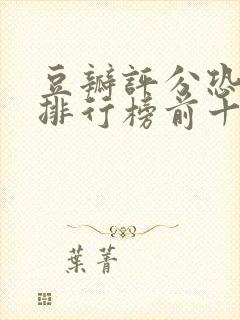 豆瓣評分恐
排行榜前十
葉菁